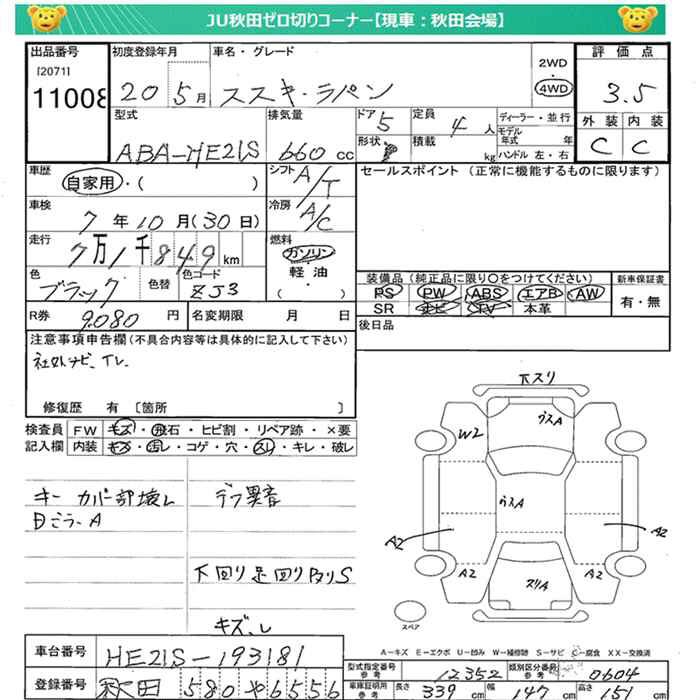 JU秋田ゼロ切りコーナー【現車：秋田会場】
出品番号 初度登録年月 車名・グレード 2WD 4WD 評価点
[2071]
11008 20 5月 スズキ・ラパン 3.5
型式 排気量 ドア 5 定員 4人 ディーラー・並行 外装 内装
形状 積載 kg モデル年式 年 C C
ABA-HE21S 660cc ハンドル 左・右
車歴 自家用・( ) シフト A/T セールスポイント (正常に機能するものに限ります)
車検 7年10月(30日) 冷房 A/C
走行 7万1千849km 燃料 ガソリン
軽油
・( )
色 ブラック 色替 色コード ZJ3
装備品(純正品に限り○をつけてください) 新車保証書
PS PW ABS エアB AW 有・無
SR ナビ TV 本革
R券 9.080円 名変期限 月 日 後日品
注意事項申告欄(不具合内容等は具体的に記入して下さい)
社外ナビ、TV.
修復歴 有 〔箇所 〕
検査員 FW キズ・飛石・ヒビ割・リペア跡・×要
記入欄 内装 キズ・汚レ・コゲ・穴・スレ・キレ・破レ
下スリ
ウスA
W2
ウスA
A2 A2
A2 A2
スリA
スペア
キーカバー部壊レ デフ異音
目ごう、A
下回り足回りサビS
キズ、レ
A−キズ E−エクボ U−凹み W−補修跡 S−サビ C−腐食 XX−交換済
車台番号 HE21S-193181
登録番号 秋田 580 や 6556
型式指定番号 参考 12352 類別区分番号 参考 0604
車庫証明用 参考 長さ 339cm 幅 147cm 高さ 151cm